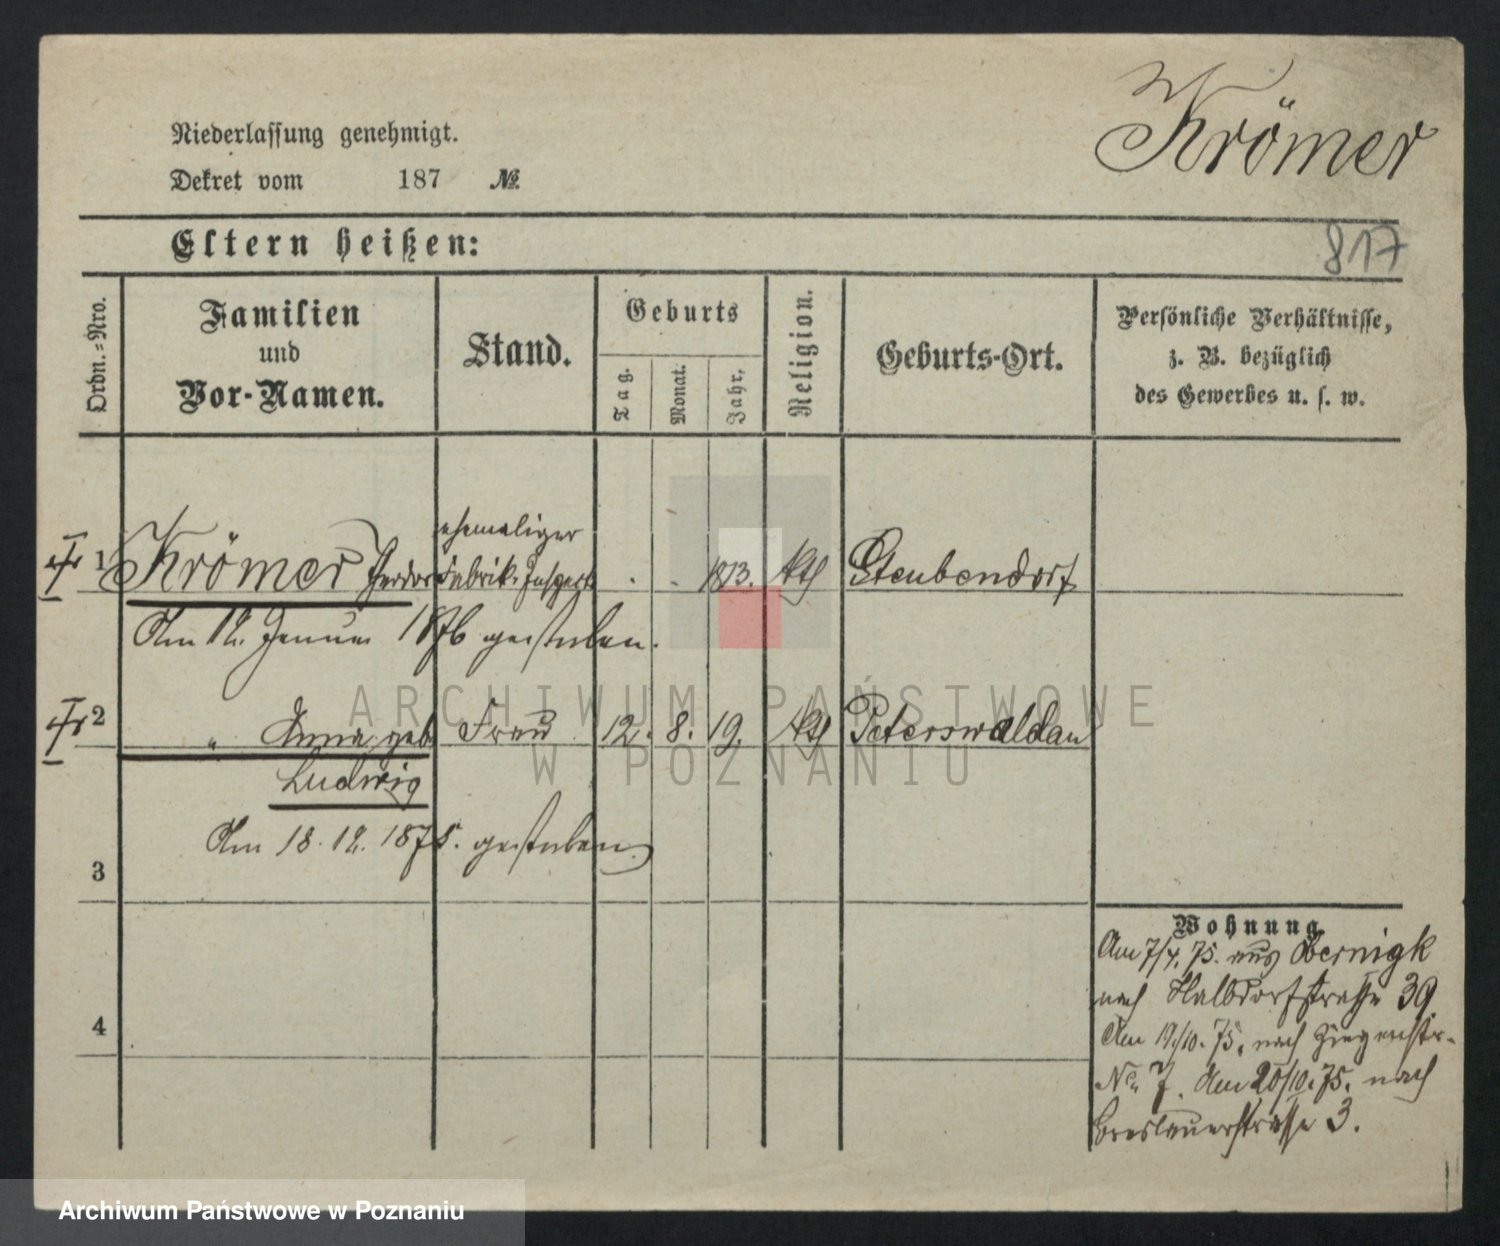 Krömer
Niederlassung genehmigt.
Dekret vom 187 №
Eltern heißen:
817
Ordn.-Nro.
Familien
und
Vor-Namen.
Stand.
Geburts
Tag.
Monat.
Jahr.
Religion.
Geburts-Ort.
Persönliche Verhältnisse,
z. B. bezüglich
des Gewerbes u. s. w.
ehemaliger
1 Krömer Theodor Fabrik-Inspect. 1813. kth Steubendorf
Am 12. Januar 1876 gestorben.
2 " Anna geb. Frau 12. 8. 19. kth Peterswaldau
Ludwig
Am 18. 12. 1875. gestorben.
3
4
Wohnung
Am 7/4. 75. aus Obernigk
nach Halbdorfstraße 39.
Am 19/10. 75. nach Ziegenstr.
No. 7. Am 20/10. 75. nach
Breslauerstrasse 3.
ARCHIWUM PAŃSTWOWE
W POZNANIU
Archiwum Państwowe w Poznaniu